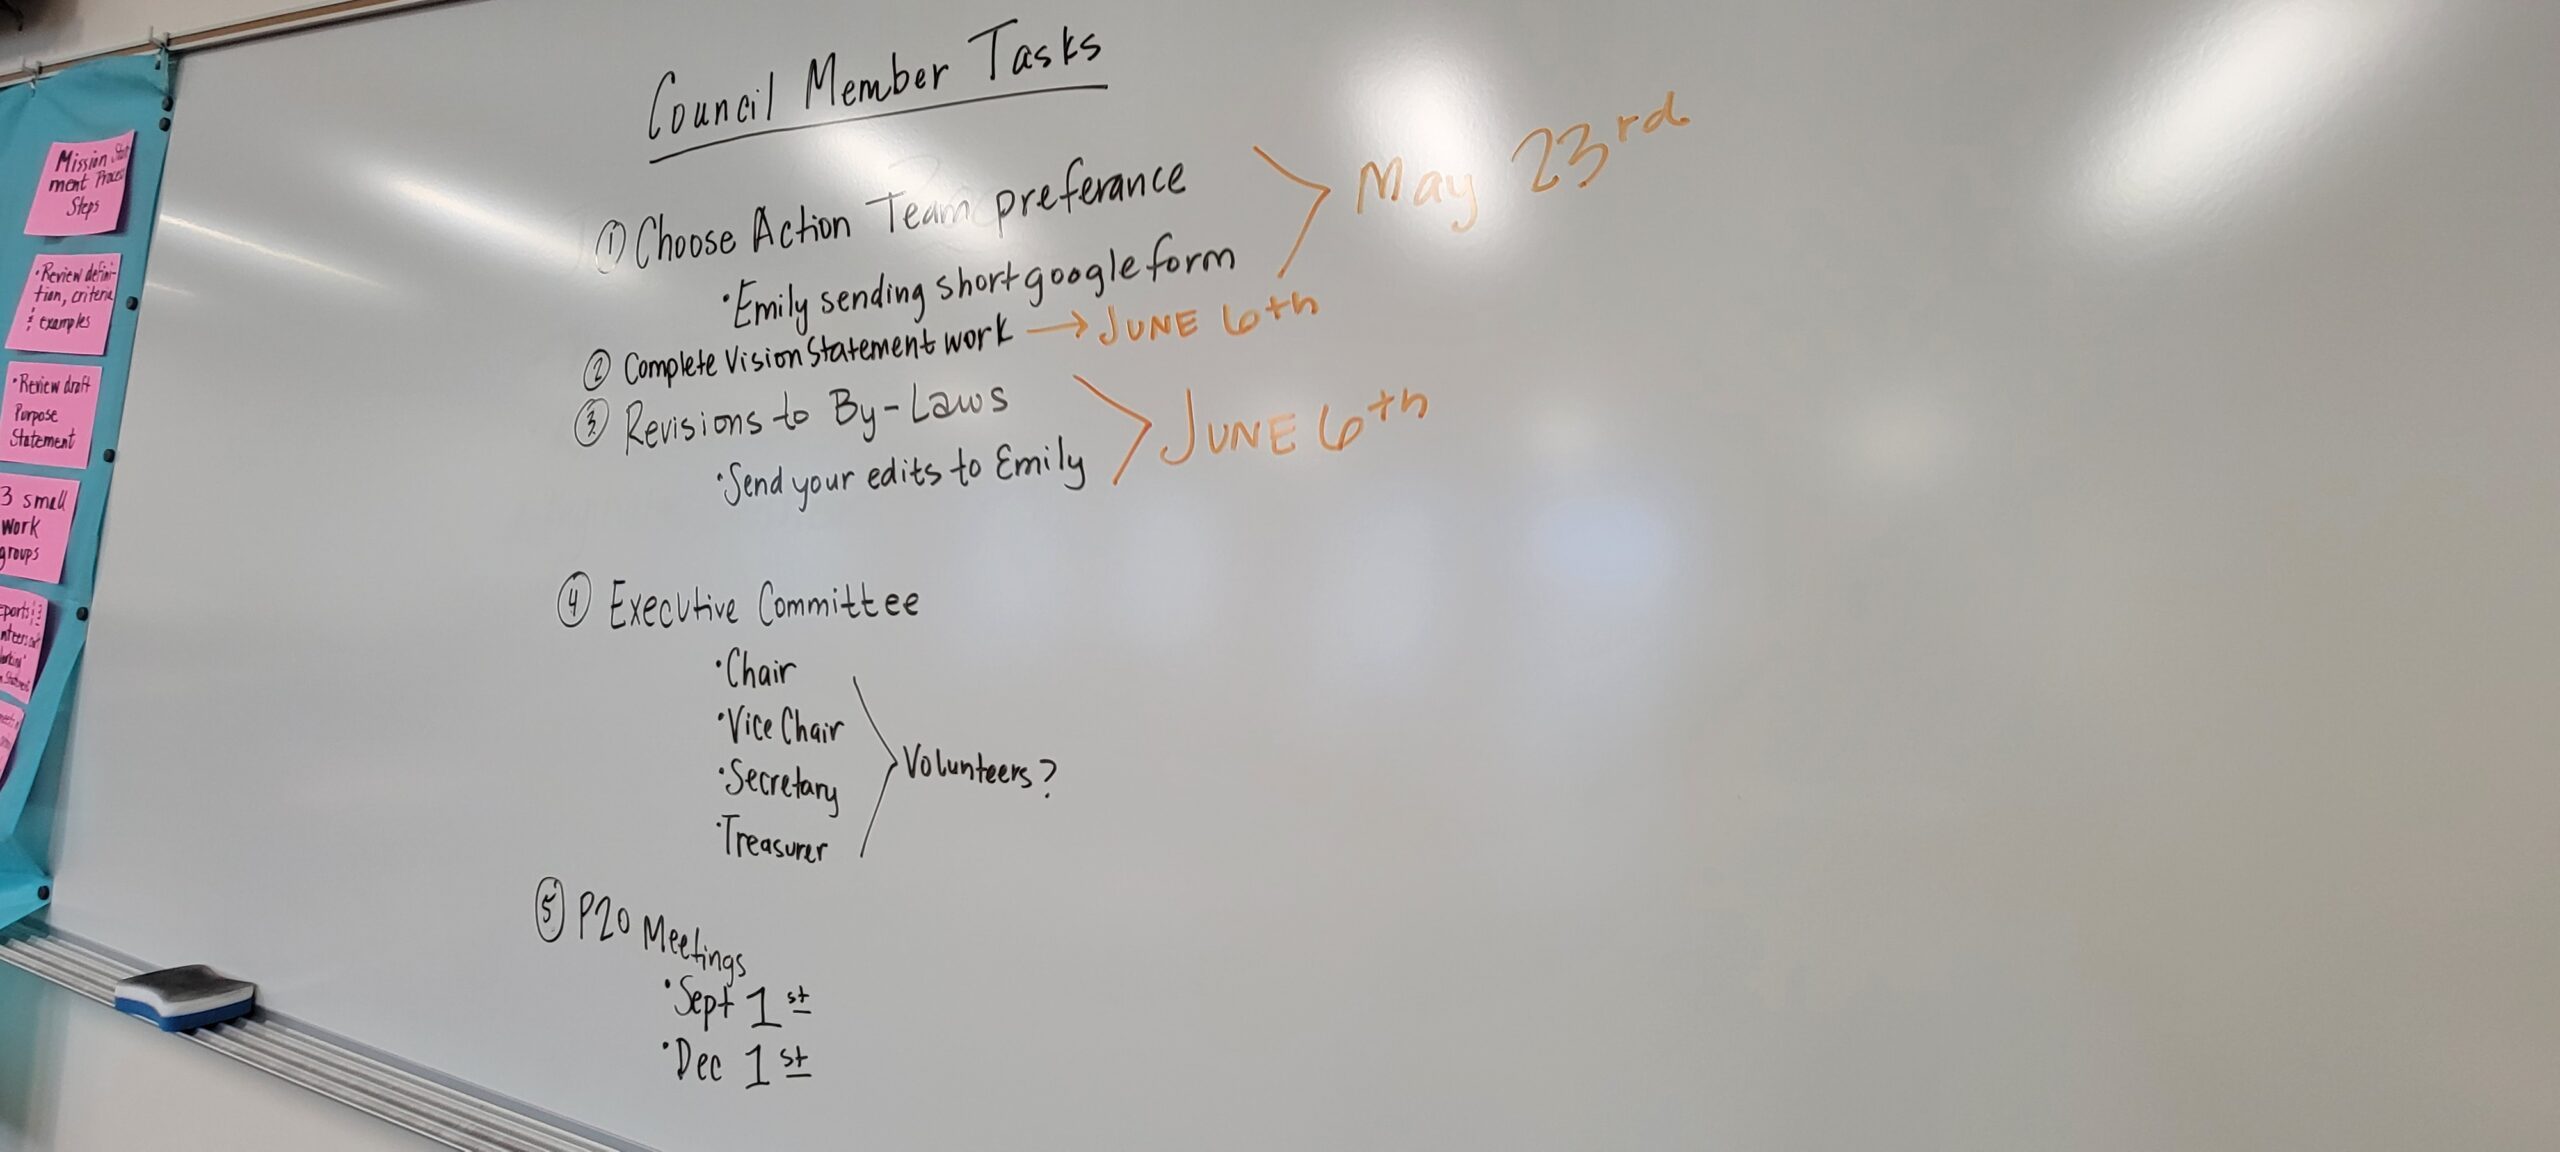 Council Member Tasks
① Choose Action Team preferance
• Emily sending short google form
May 23rd
② Complete Vision Statement work → JUNE 6th
③ Revisions to By-Laws
• Send your edits to Emily
JUNE 6th
④ Executive Committee
• Chair
• Vice Chair
• Secretary
• Treasurer
Volunteers?
⑤ P20 Meetings
• Sept 1st
• Dec 1st
Mission
ment Process
Steps
• Review defini-
tion, criteria
& examples
• Review draft
Purpose
Statement
3 small
work
groups